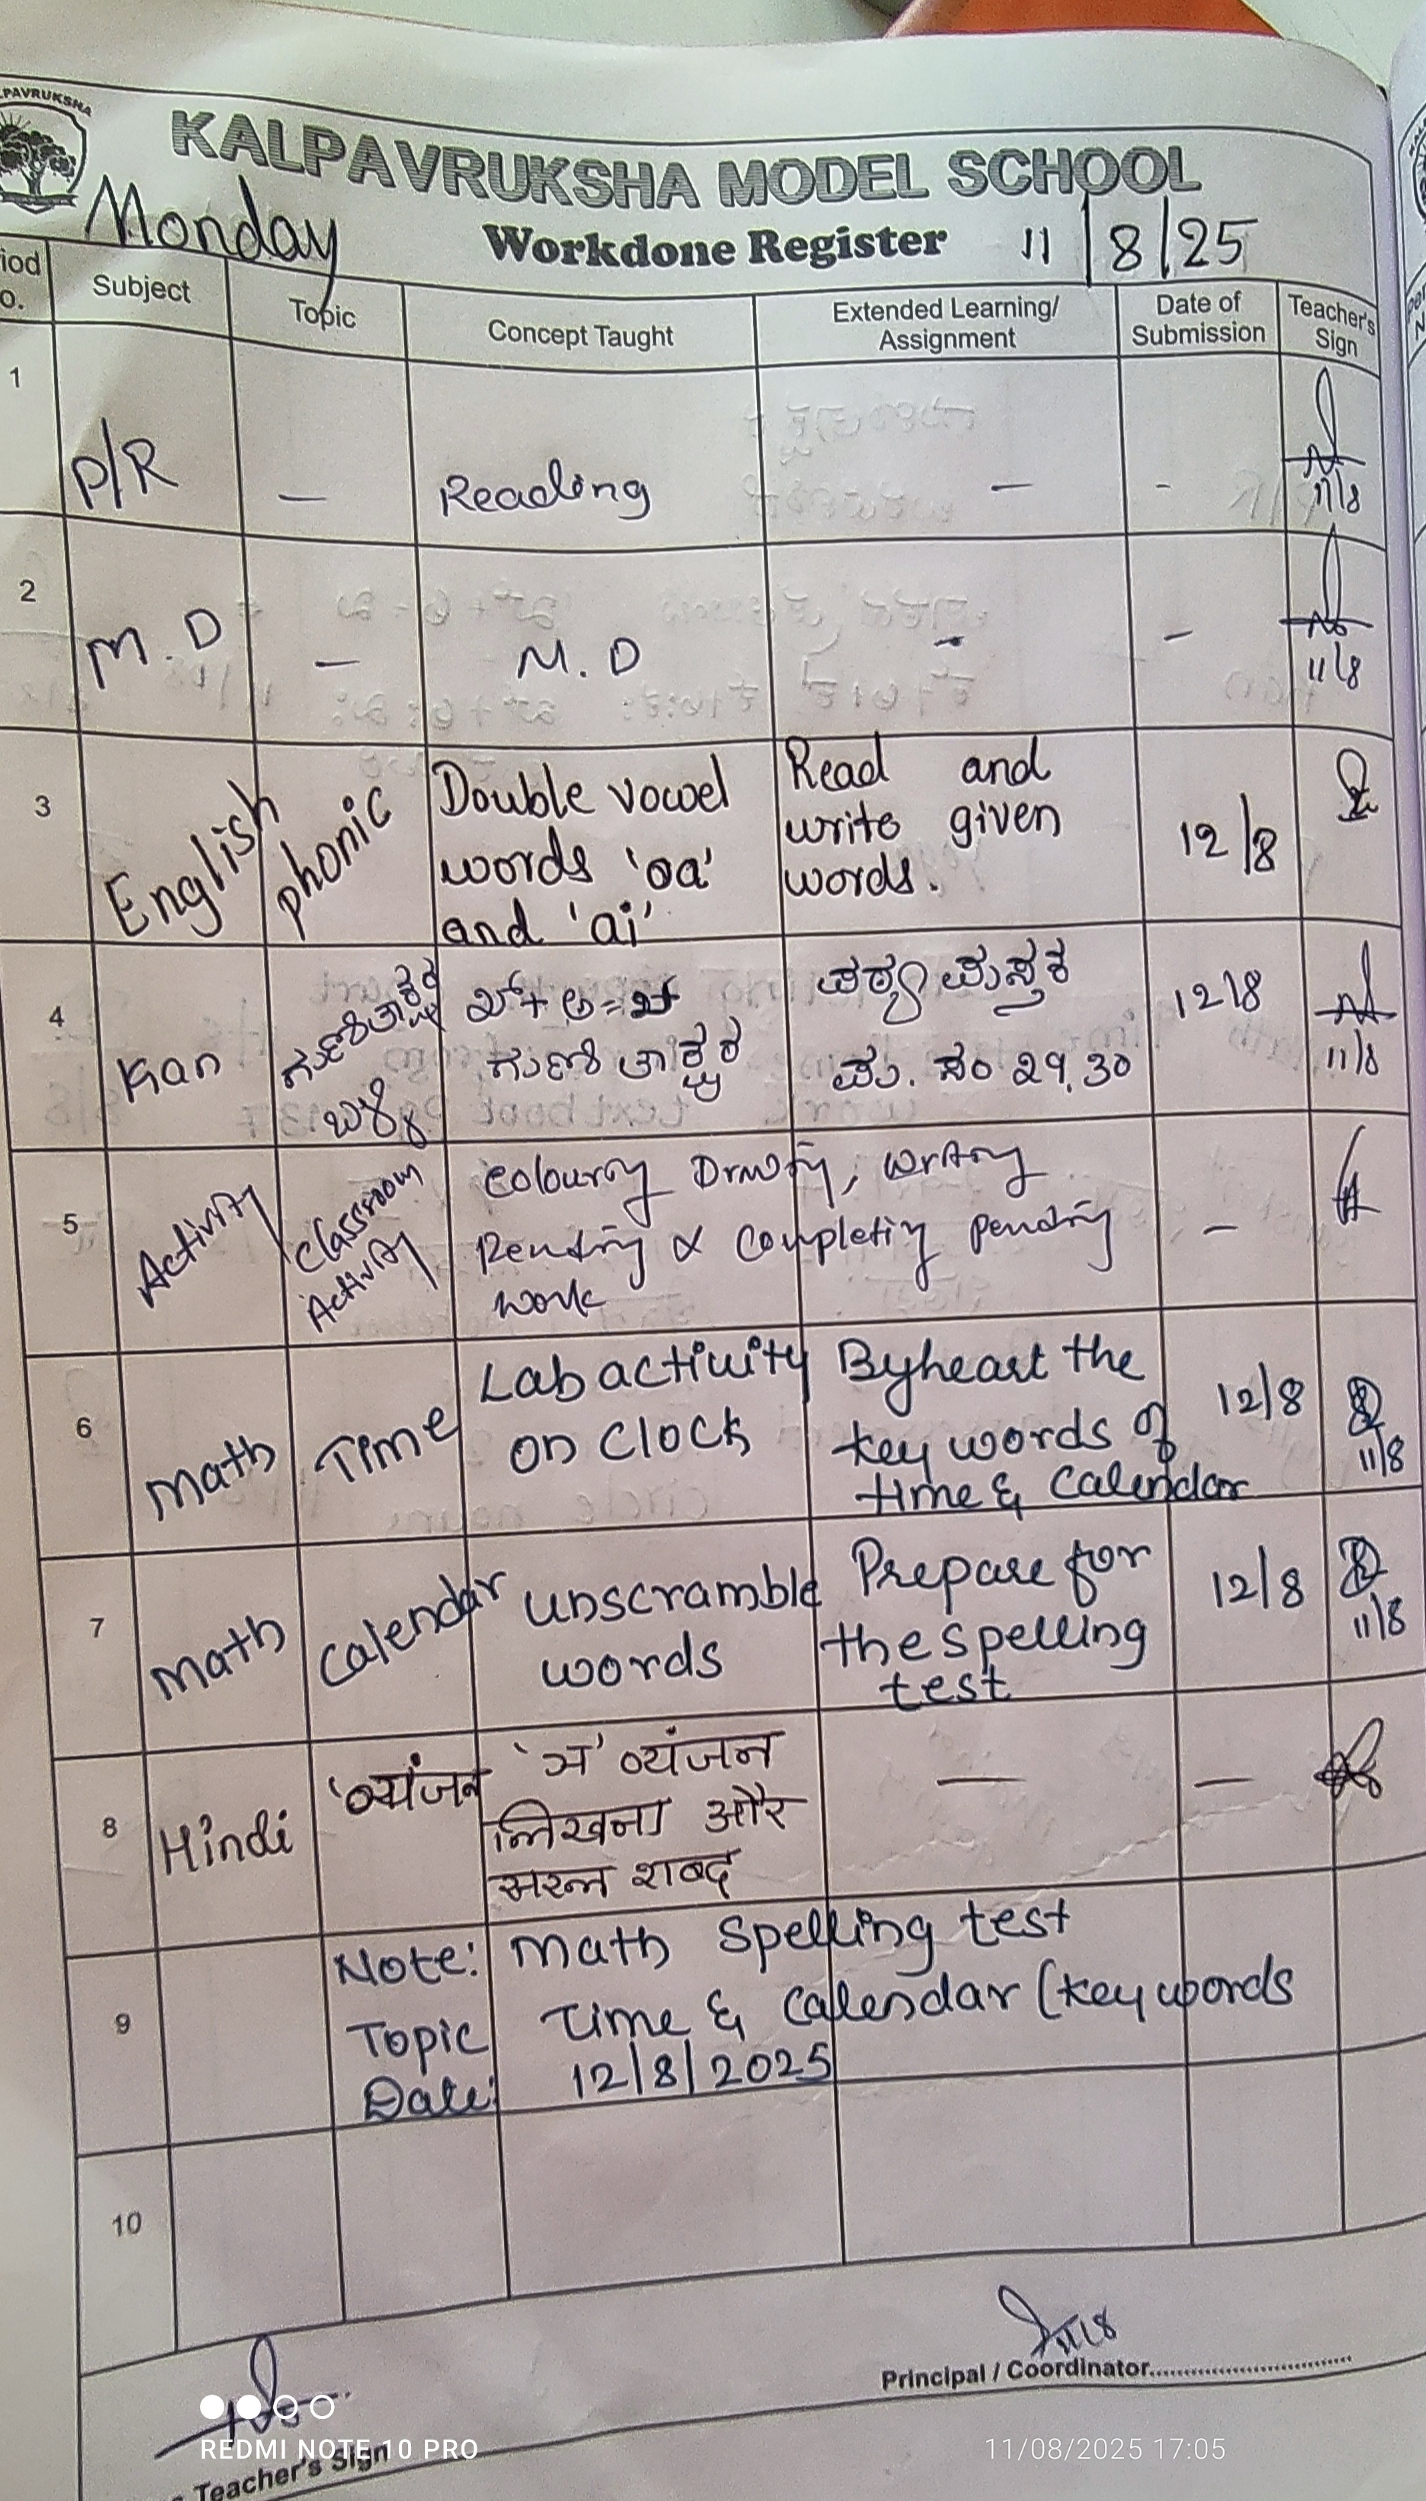 KALPAVRUKSHA
KALPAVRUKSHA MODEL SCHOOL
Monday Workdone Register 11/8/25
Subject Topic Concept Taught Extended Learning/ Assignment Date of Submission Teacher's Sign
1 P/R — Reading — - 11/8
2 M.D — M.D - - 11/8
3 English phonic Double vowel Read and 12/8
words 'oa' write given
and 'ai' words.
4 Kan ಗುಣಿತಾಕ್ಷರ ಪಠ್ಯ ಪುಸ್ತಕ 12/8
ಗುಣಿತಾಕ್ಷರ ಪು. ಸಂ 29,30 11/8
5 Activity Classroom Colouring Drawing, writing
Activity Reading & Completing pending —
work
6 Math Time Lab activity Byheart the 12/8
on Clock key words of 11/8
time & Calendar
7 Math Calendar unscramble Prepare for 12/8
words the spelling 11/8
test
8 Hindi 'व्यंजन 'ञ' व्यंजन — —
लिखना और
सरल शब्द
9 Note: Math Spelling test
Topic Time & Calendar (key words
Date: 12/8/2025
10
11/8
Principal / Coordinator
Teacher's Sign
REDMI NOTE 10 PRO 11/08/2025 17:05